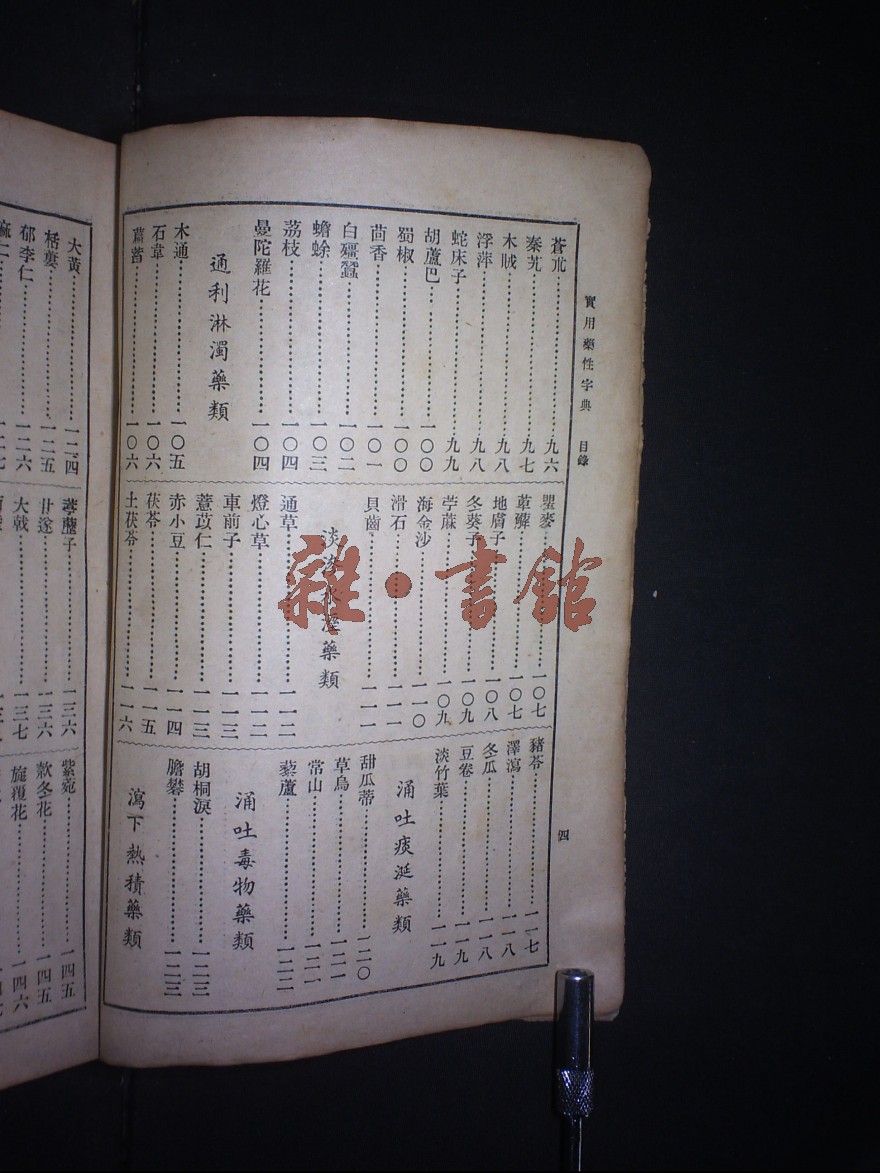 實用藥性字典 目錄 四
蒼朮 九六
秦艽 九七
木賊 九八
浮萍 九八
蛇床子 九九
胡蘆巴 一〇〇
蜀椒 一〇〇
茴香 一〇一
白殭蠶 一〇二
蟾蜍 一〇三
荔枝 一〇四
曼陀羅花 一〇四
通利淋濁藥類
木通 一〇五
石韋 一〇六
萹蓄 一〇六
瞿麥 一〇七
萆薢 一〇七
地膚子 一〇八
冬葵子 一〇九
苧蔴 一〇九
海金沙 一一〇
滑石 一一一
貝齒 一一一
藥類
通草 一一二
燈心草 一一二
車前子 一一三
薏苡仁 一一三
赤小豆 一一四
茯苓 一一五
土茯苓 一一六
豬苓 一一七
澤瀉 一一八
冬瓜 一一八
豆卷 一一九
淡竹葉 一一九
涌吐痰涎藥類
甜瓜蒂 一二〇
草烏 一二一
常山 一二一
藜蘆 一二二
涌吐毒物藥類
胡桐淚 一二三
膽礬 一二三
瀉下熱積藥類
大黃 一二四
栝蔞 一二五
郁李仁 一二六
葶藶子 一三六
甘遂 一三六
大戟 一三七
紫菀 一四五
款冬花 一四五
旋覆花 一四六
雜·書館